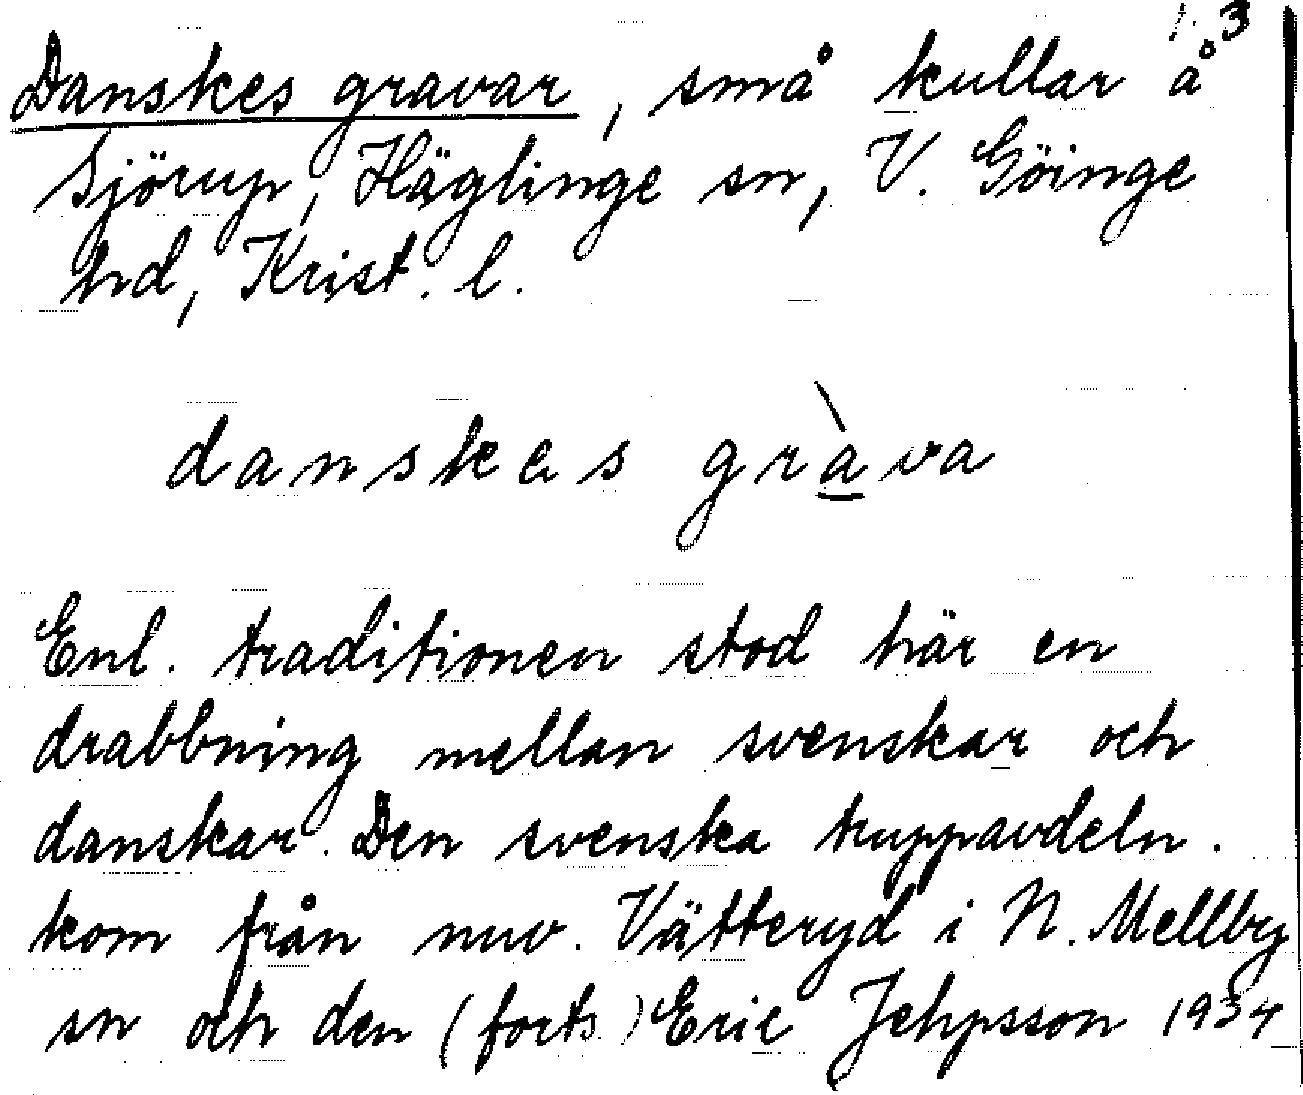 1. 3
Danskes gravar, små kullar å
Sjörup, Häglinge sn, V. Göinge
hd, Krist. l.
danskes gràva
Enl. traditionen stod här en
drabbning mellan svenskar och
danskar. Den svenska truppavdeln.
kom från nuv. Vätteryd i N. Mellby
sn och den (forts.) Eric Jehpsson 1934